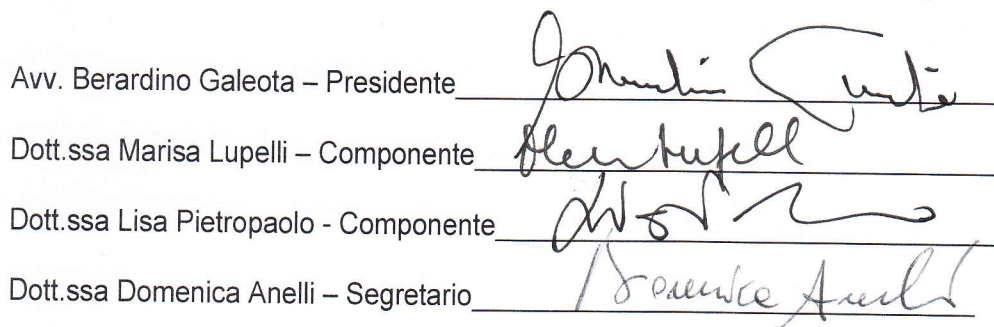 Avv. Berardino Galeota – Presidente
Dott.ssa Marisa Lupelli – Componente
Dott.ssa Lisa Pietropaolo - Componente
Dott.ssa Domenica Anelli – Segretario Domenica Anelli